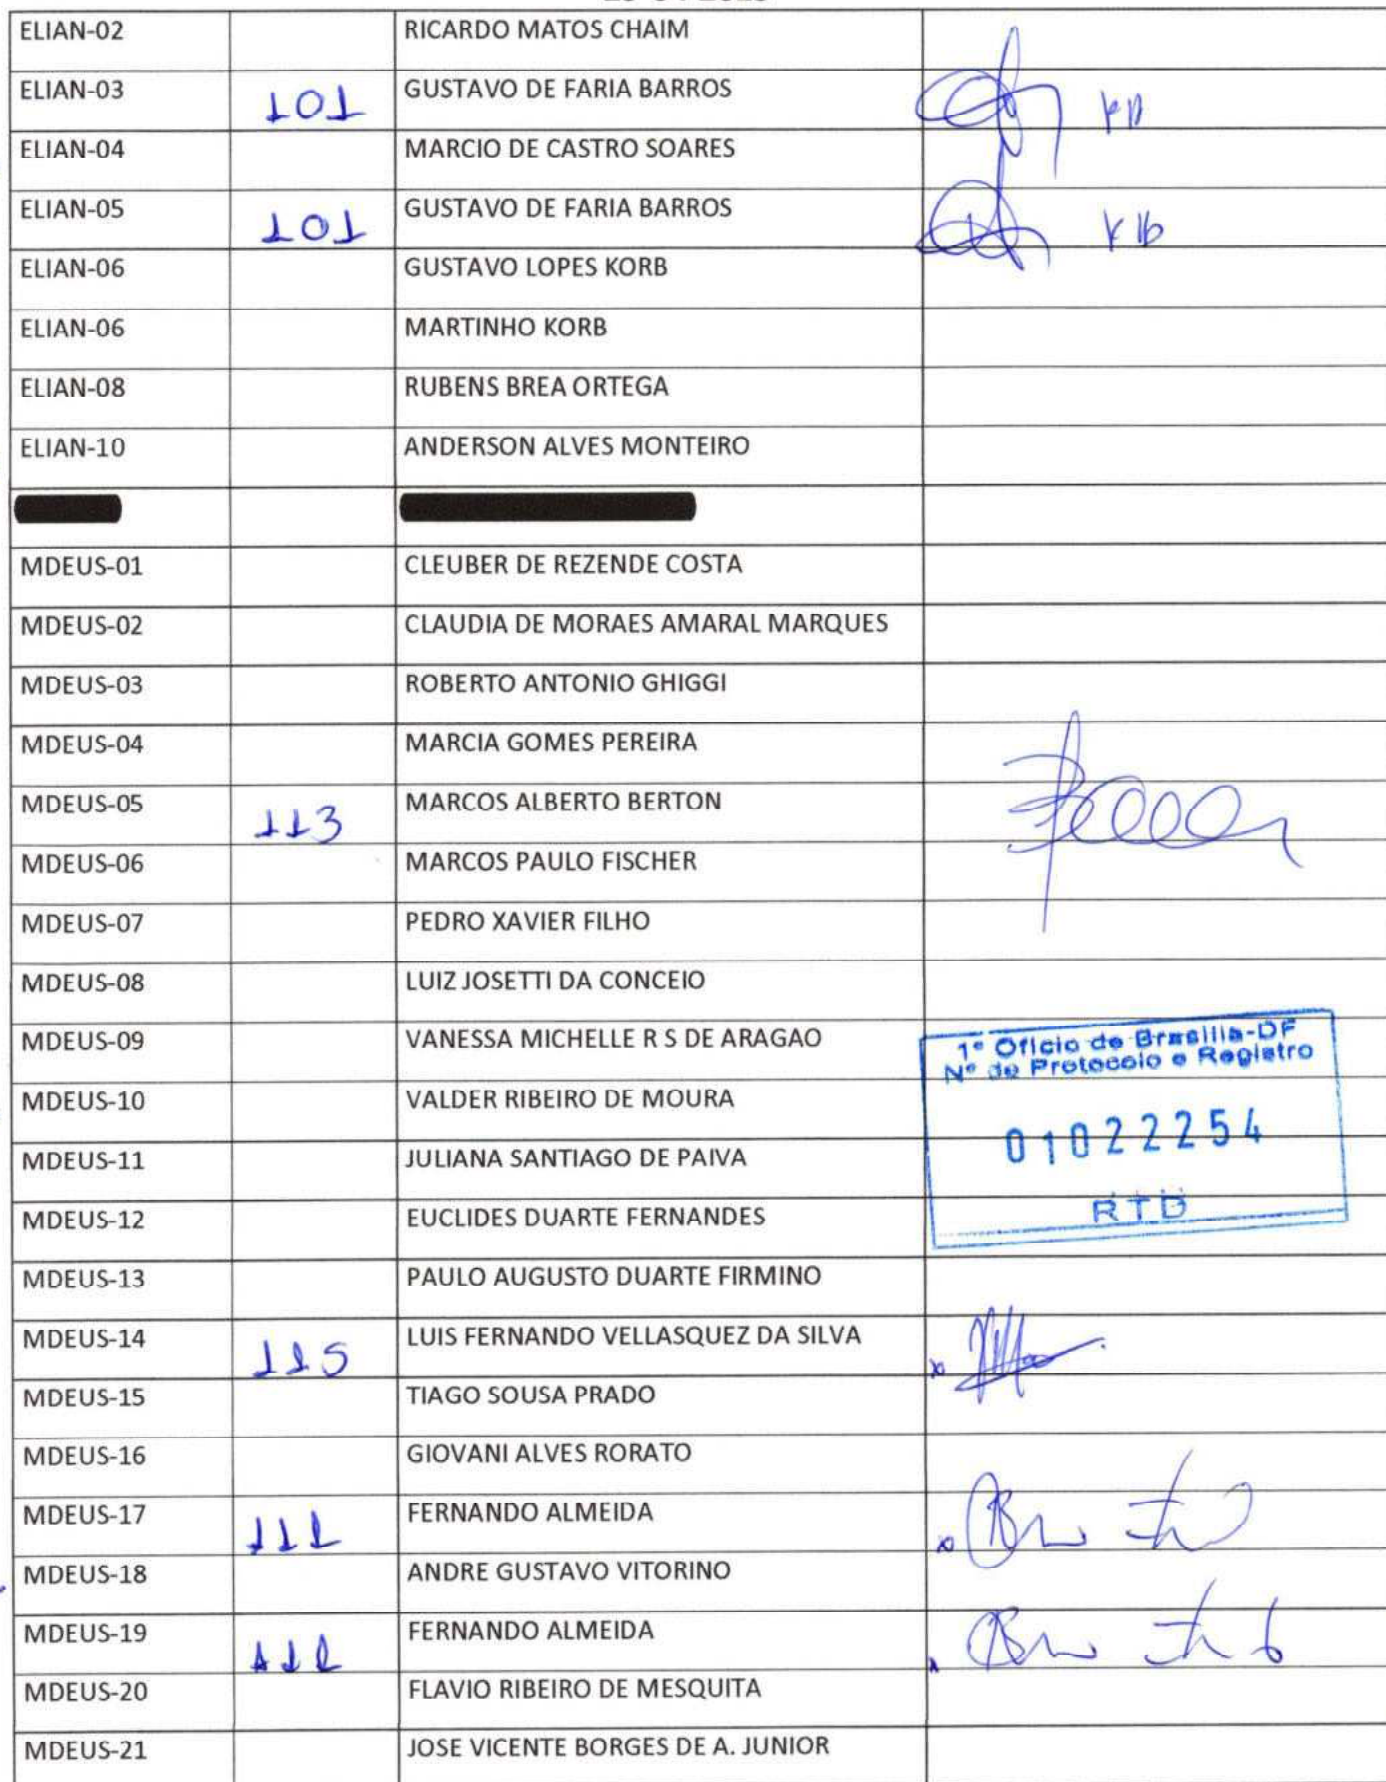 ELIAN-02 RICARDO MATOS CHAIM
ELIAN-03 101 GUSTAVO DE FARIA BARROS
ELIAN-04 MARCIO DE CASTRO SOARES
ELIAN-05 101 GUSTAVO DE FARIA BARROS
ELIAN-06 GUSTAVO LOPES KORB
ELIAN-06 MARTINHO KORB
ELIAN-08 RUBENS BREA ORTEGA
ELIAN-10 ANDERSON ALVES MONTEIRO
MDEUS-01 CLEUBER DE REZENDE COSTA
MDEUS-02 CLAUDIA DE MORAES AMARAL MARQUES
MDEUS-03 ROBERTO ANTONIO GHIGGI
MDEUS-04 MARCIA GOMES PEREIRA
MDEUS-05 113 MARCOS ALBERTO BERTON
MDEUS-06 MARCOS PAULO FISCHER
MDEUS-07 PEDRO XAVIER FILHO
MDEUS-08 LUIZ JOSETTI DA CONCEIO
MDEUS-09 VANESSA MICHELLE R S DE ARAGAO
1º Ofício de Brasília-DF
Nº de Protocolo e Registro
MDEUS-10 VALDER RIBEIRO DE MOURA
01022254
MDEUS-11 JULIANA SANTIAGO DE PAIVA
MDEUS-12 EUCLIDES DUARTE FERNANDES
RTD
MDEUS-13 PAULO AUGUSTO DUARTE FIRMINO
MDEUS-14 115 LUIS FERNANDO VELLASQUEZ DA SILVA
MDEUS-15 TIAGO SOUSA PRADO
MDEUS-16 GIOVANI ALVES RORATO
MDEUS-17 111 FERNANDO ALMEIDA
MDEUS-18 ANDRE GUSTAVO VITORINO
MDEUS-19 111 FERNANDO ALMEIDA
MDEUS-20 FLAVIO RIBEIRO DE MESQUITA
MDEUS-21 JOSE VICENTE BORGES DE A. JUNIOR